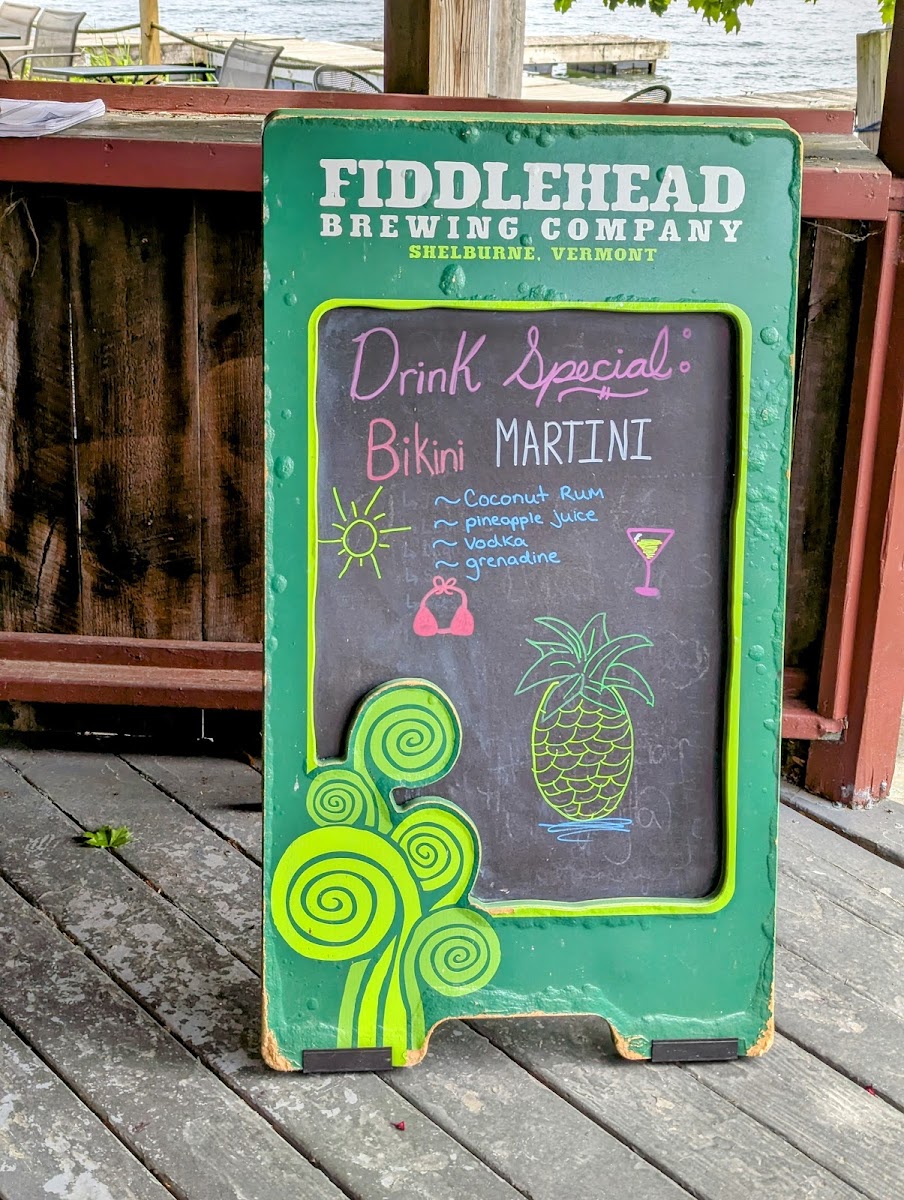 FIDDLEHEAD
BREWING COMPANY
SHELBURNE, VERMONT
Drink Special:
Bikini MARTINI
~ Coconut Rum
~ pineapple juice
~ vodka
~ grenadine